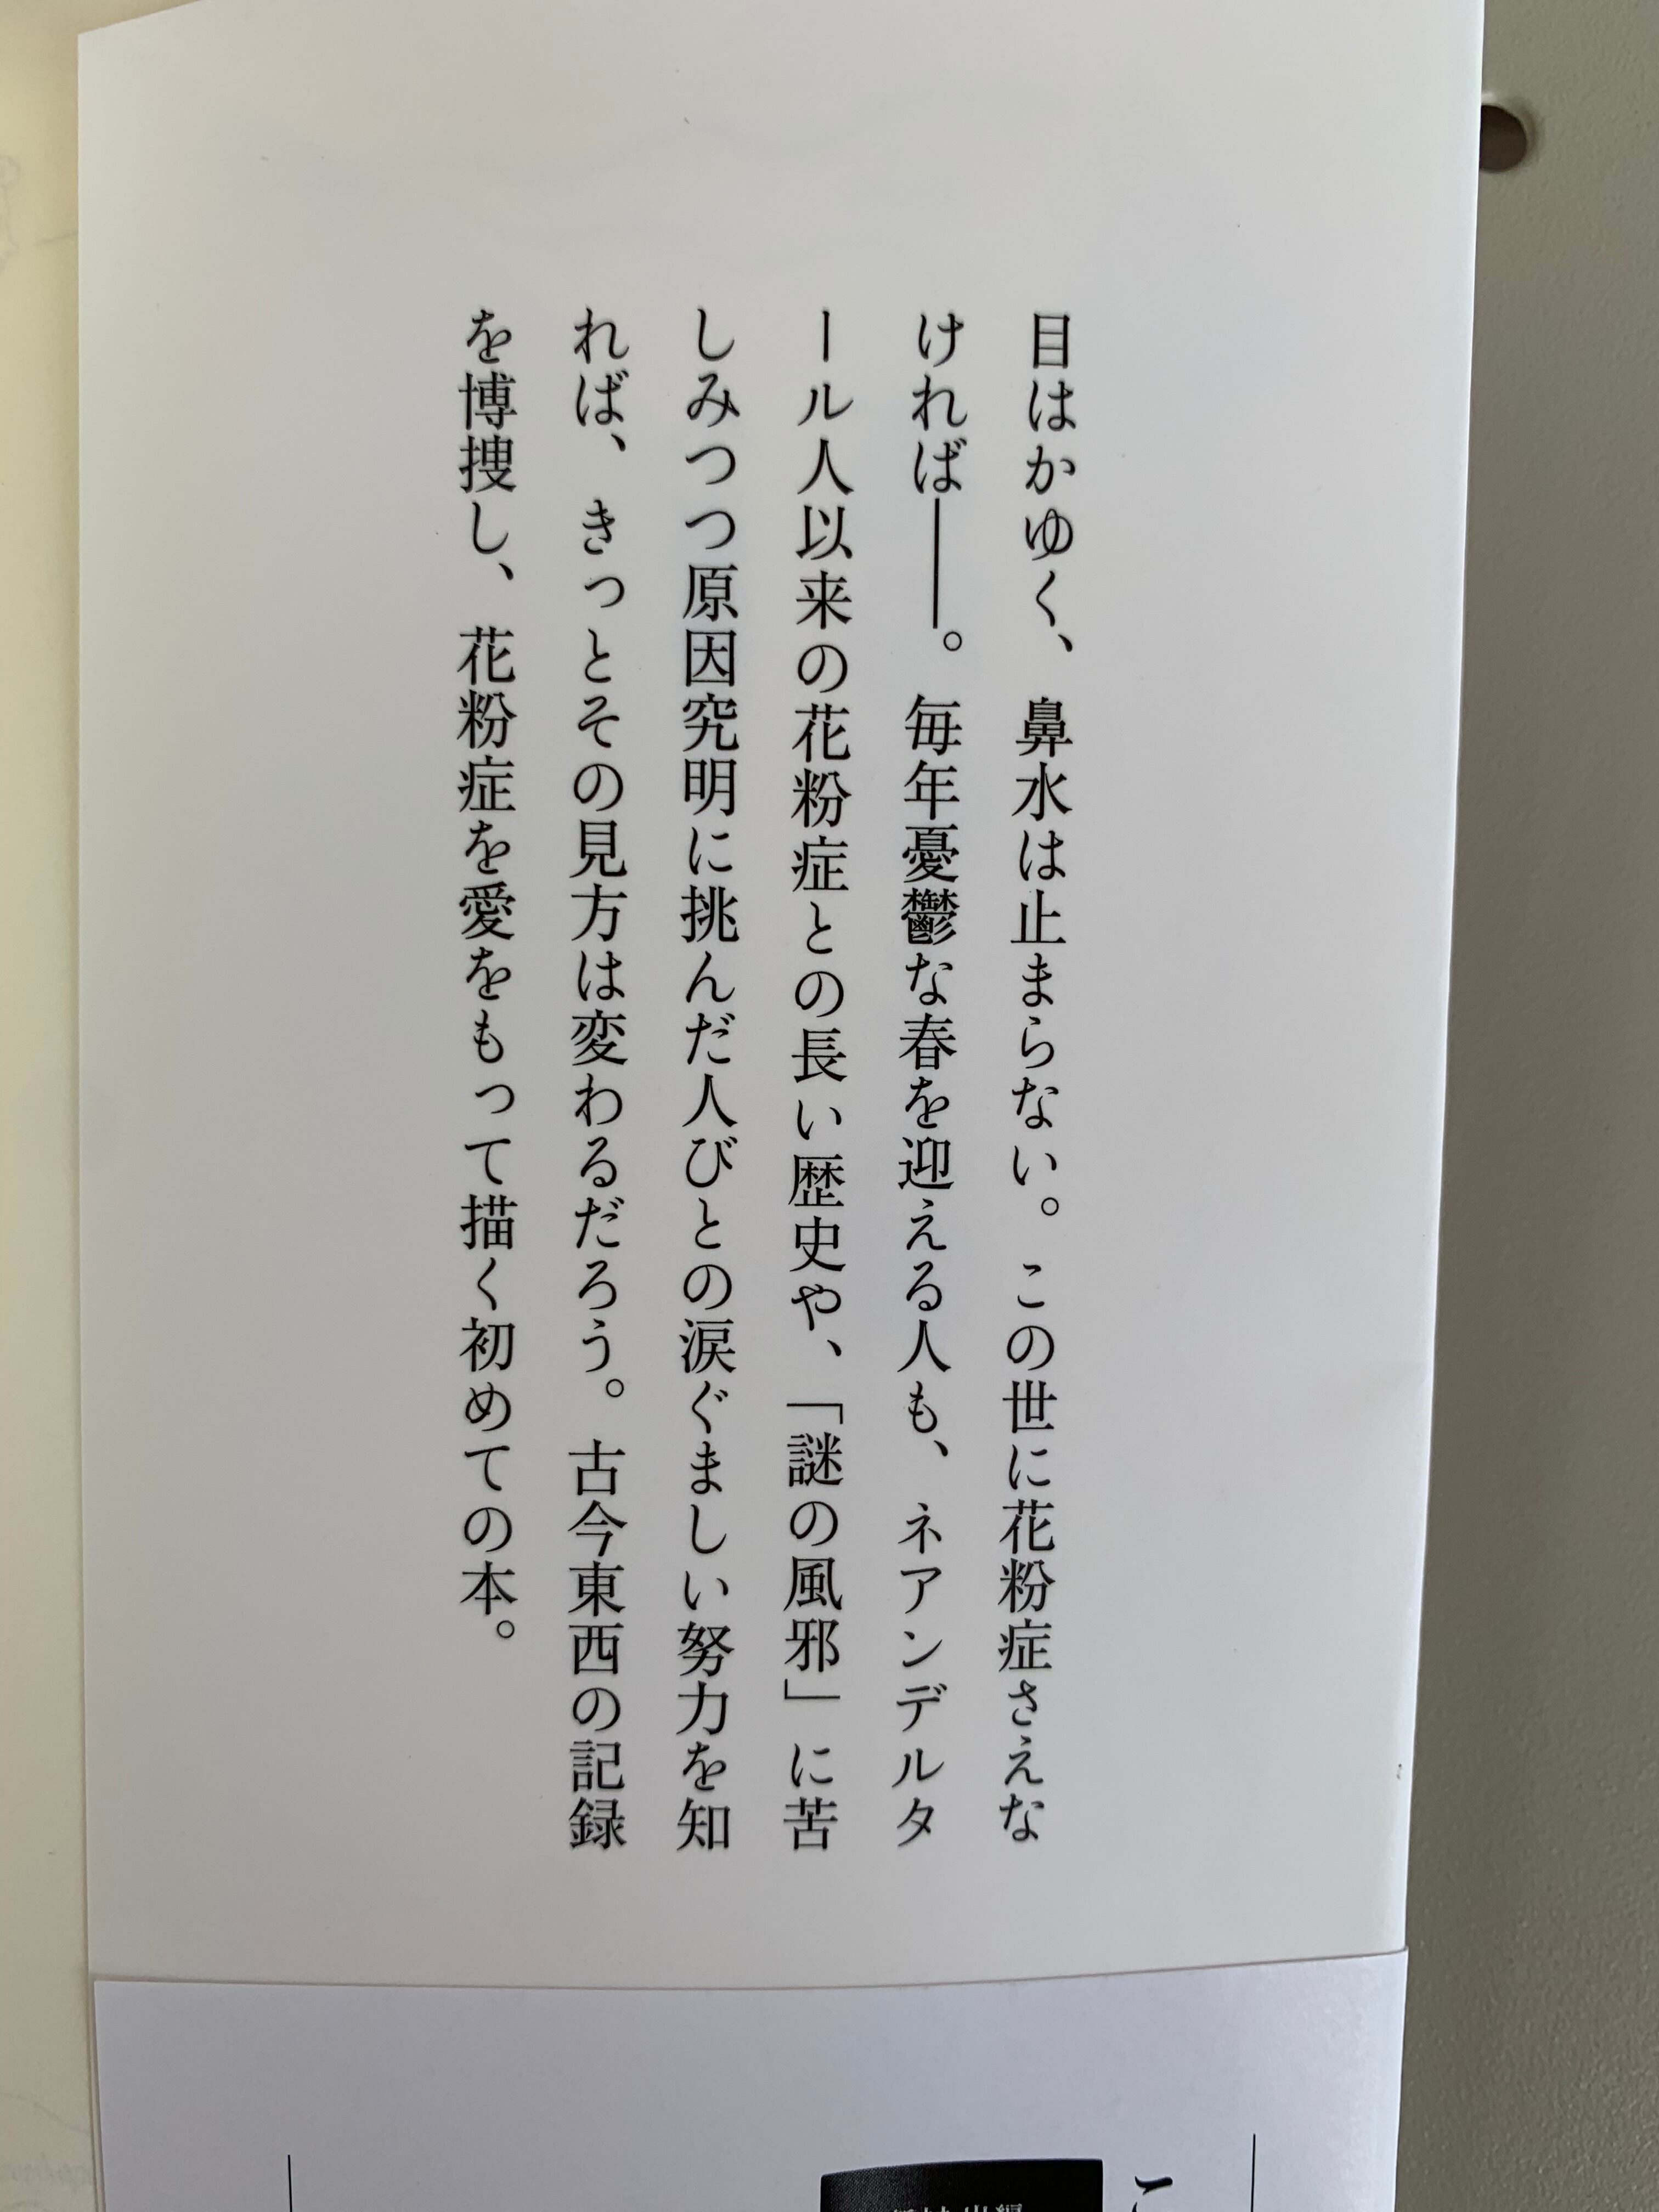 目はかゆく、鼻水は止まらない。この世に花粉症さえな
ければ――。毎年憂鬱な春を迎える人も、ネアンデルタ
ール人以来の花粉症との長い歴史や、「謎の風邪」に苦
しみつつ原因究明に挑んだ人びとの涙ぐましい努力を知
れば、きっとその見方は変わるだろう。古今東西の記録
を博捜し、花粉症を愛をもって描く初めての本。